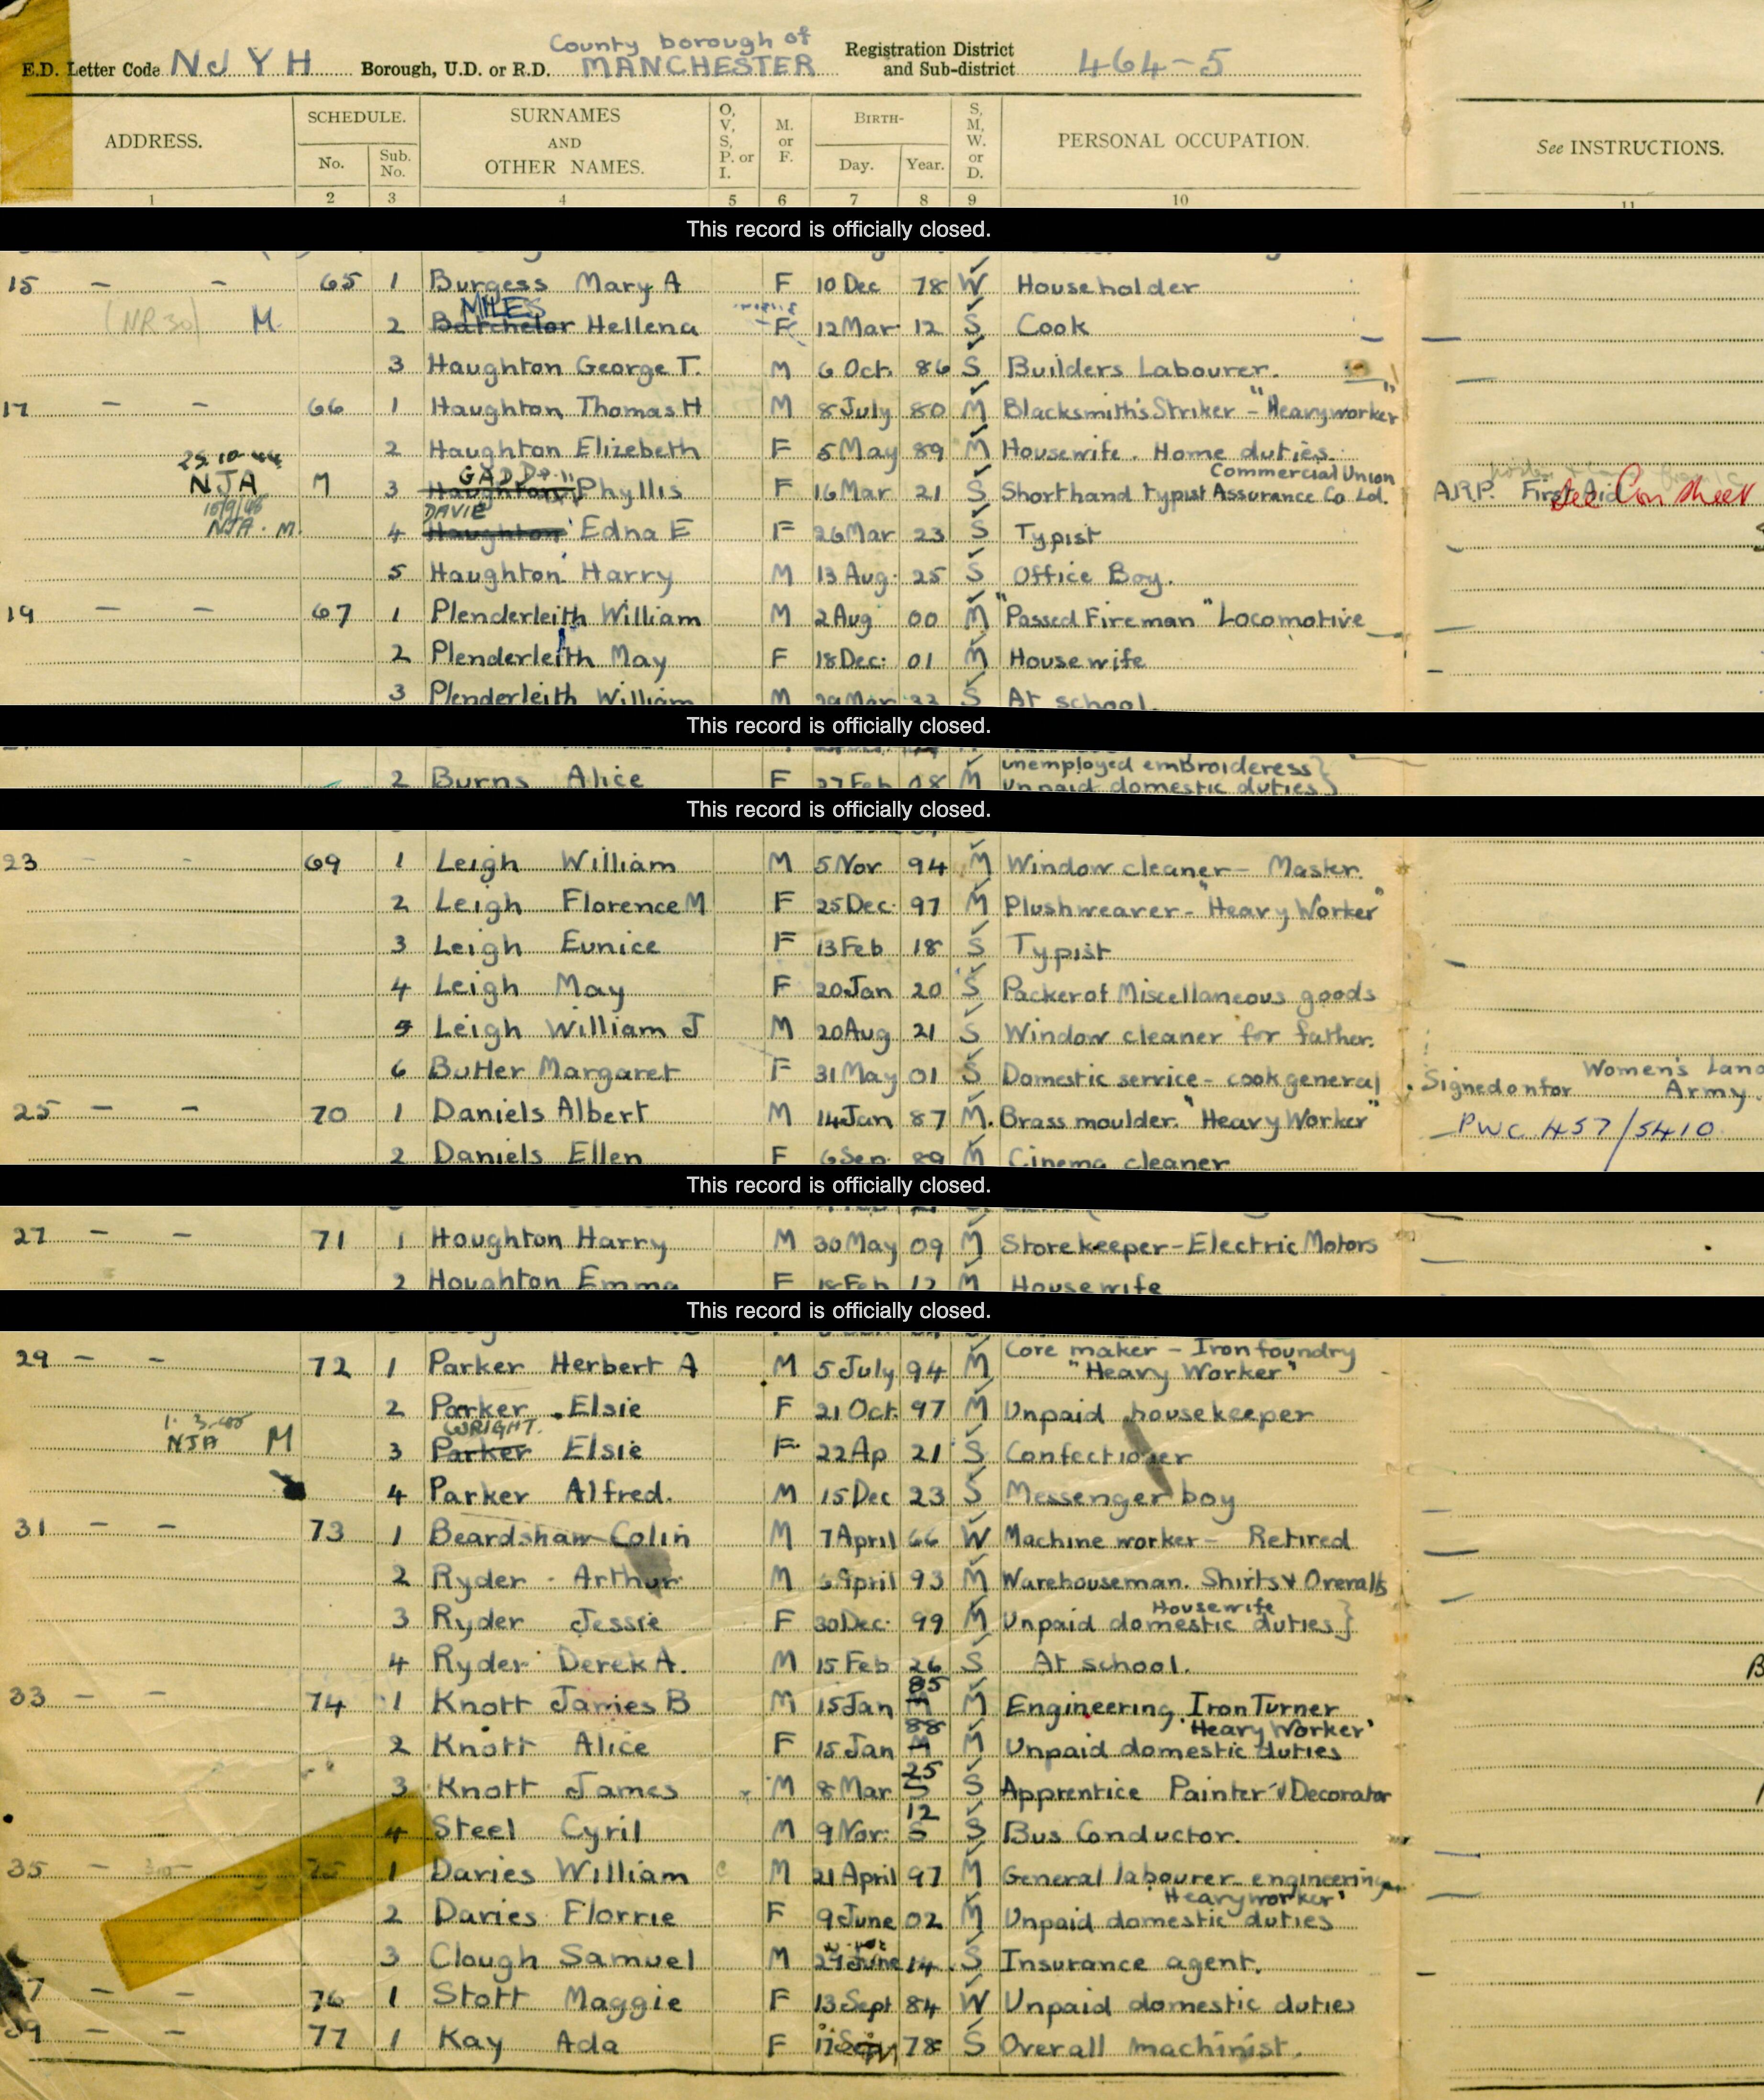 County borough of
E.D. Letter Code NJYH Borough, U.D. or R.D. MANCHESTER Registration District and Sub-district 464-5
ADDRESS. SCHEDULE. No. Sub. No. SURNAMES AND OTHER NAMES. O, V, S, P. or I. M. or F. BIRTH- Day. Year. S, M, W. or D. PERSONAL OCCUPATION. See INSTRUCTIONS.
1 2 3 4 5 6 7 8 9 10 11
This record is officially closed.
15 – – 65 1 Burgess Mary A F 10 Dec 78 W Householder
MILES
(NR30) M 2 Batchelor Hellena F 12 Mar 12 S Cook
3 Haughton George T. M 6 Oct 86 S Builders Labourer.
17 – – 66 1 Haughton Thomas H M 8 July 80 M Blacksmith's Striker - "Heavy worker"
2 Haughton Elizebeth F 5 May 89 M Housewife. Home duties.
Commercial Union
NJA M 3 Haughton Phyllis F 16 Mar 21 S Shorthand typist Assurance Co Ld. A.R.P. First Aid See Con sheet
DAVIE
NJA. M. 4 Haughton Edna E F 26 Mar 23 S Typist
5 Haughton Harry M 13 Aug. 25 S Office Boy.
19 – – 67 1 Plenderleith William M 2 Aug 00 M "Passed Fireman" Locomotive
2 Plenderleith May F 18 Dec. 01 M Housewife
3 Plenderleith William M 29 Mar 33 S At school.
This record is officially closed.
unemployed embroideress}
2 Burns Alice F 27 Feb 08 M Unpaid domestic duties}
This record is officially closed.
23 – – 69 1 Leigh William M 5 Nov 94 M Window cleaner - Master.
2 Leigh Florence M F 25 Dec. 97 M Plushweaver - "Heavy Worker"
3 Leigh Eunice F 13 Feb 18 S Typist
4 Leigh May F 20 Jan 20 S Packer of Miscellaneous goods
5 Leigh William J M 20 Aug 21 S Window cleaner for father.
6 Butler Margaret F 31 May 01 S Domestic service - cook general Signed on for Women's Land Army.
25 – – 70 1 Daniels Albert M 14 Jan 87 M. Brass moulder. "Heavy Worker" PWC 457/5410
2 Daniels Ellen F 6 Sep. 89 M Cinema cleaner
This record is officially closed.
27 – – 71 1 Houghton Harry M 30 May 09 M Storekeeper - Electric Motors
2 Houghton Emma F 18 Feb 12 M Housewife
This record is officially closed.
Core maker - Iron foundry
29 – – 72 1 Parker Herbert A M 5 July 94 M "Heavy Worker"
2 Parker Elsie F 21 Oct. 97 M Unpaid housekeeper
WRIGHT.
NJA M 3 Parker Elsie F. 22 Ap 21 S Confectioner
4 Parker Alfred. M 15 Dec 23 S Messenger boy
31 – – 73 1 Beardshaw Colin M 7 April 66 W Machine worker - Retired
2 Ryder - Arthur M April 93 M Warehouseman. Shirts & Overalls
Housewife
3 Ryder Jessie F 30 Dec. 99 M Unpaid domestic duties}
4 Ryder Derek A. M 15 Feb 26 S At school.
85
33 – – 74 1 Knott James B M 15 Jan M M Engineering, Iron Turner
88 'Heavy Worker'
2 Knott Alice F 15 Jan M M Unpaid domestic duties
25
3 Knott James M 8 Mar S S Apprentice Painter & Decorator
12
4 Steel Cyril M 9 Nov. S S Bus Conductor.
35 – – 75 1 Davies William M 21 April 97 M General labourer engineering
"Heavy worker"
2 Davies Florrie F 9 June 02 M Unpaid domestic duties
3 Clough Samuel M 29 June 14 S Insurance agent.
7 – – 76 1 Stott Maggie F 13 Sept 84 W Unpaid domestic duties
9 – – 77 1 Kay Ada F 17 78 S Overall machinist.